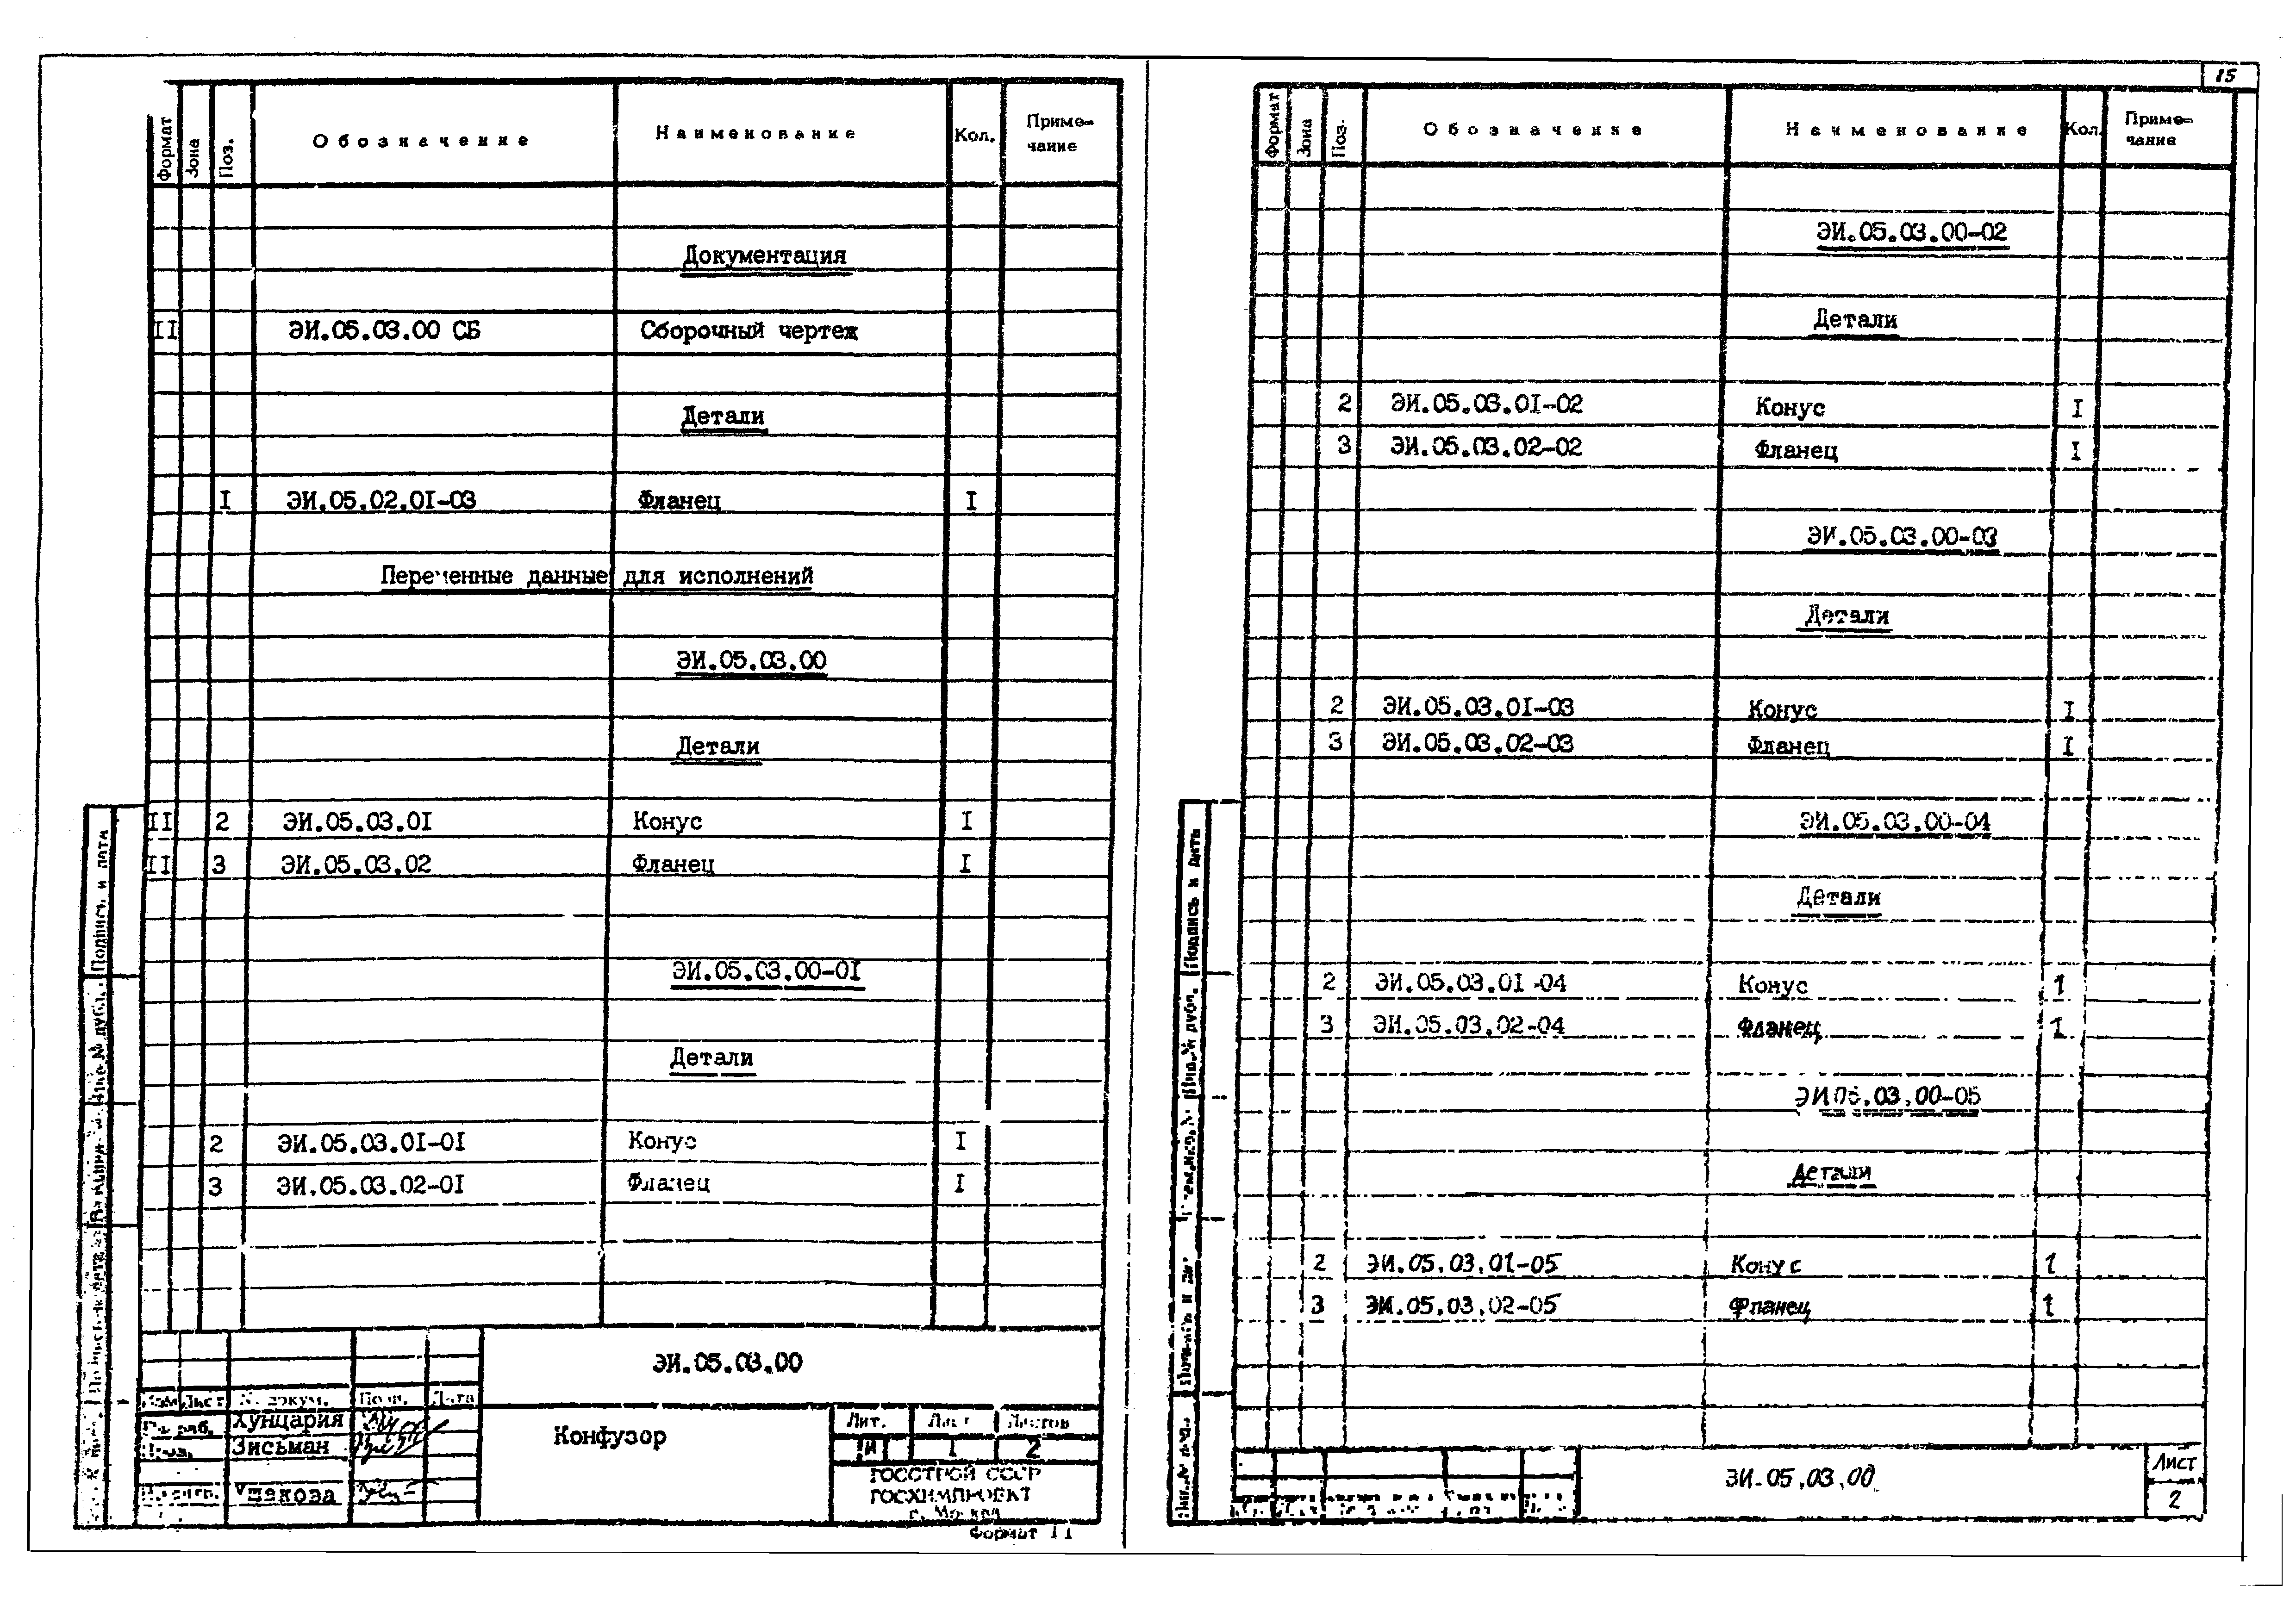 15
Формат Зона Поз. Обозначение Наименование Кол. Приме-чание
Документация
II ЭИ.05.03.00 СБ Сборочный чертеж
Детали
I ЭИ.05.02.01-03 Фланец I
Переменные данные для исполнений
ЭИ.05.03.00
Детали
II 2 ЭИ.05.03.0I Конус I
II 3 ЭИ.05.03.02 Фланец I
ЭИ.05.03.00-0I
Детали
2 ЭИ.05.03.0I-0I Конус I
3 ЭИ.05.03.02-0I Фланец I
Подпись и дата
ЭИ.05.03.00
Лист № докум. Подп. Дата
Разраб. Хунцария
Зисьман
Ушакова
Конфузор
Лит. Лист Листов
И 1 2
ГОССТРОЙ СССР
ГОСХИМПРОЕКТ
г. Москва
Формат 11
Формат Зона Поз. Обозначение Наименование Кол. Приме-чание
ЭИ.05.03.00-02
Детали
2 ЭИ.05.03.0I-02 Конус I
3 ЭИ.05.03.02-02 Фланец I
ЭИ.05.03.00-03
Детали
2 ЭИ.05.03.0I-03 Конус I
3 ЭИ.05.03.02-03 Фланец I
ЭИ.05.03.00-04
Детали
2 ЭИ.05.03.0I-04 Конус 1
3 ЭИ.05.03.02-04 Фланец 1
ЭИ.05.03.00-05
Детали
2 ЭИ.05.03.01-05 Конус 1
3 ЭИ.05.03.02-05 Фланец 1
Подпись и дата
ЭИ.05.03.00
Лист
2